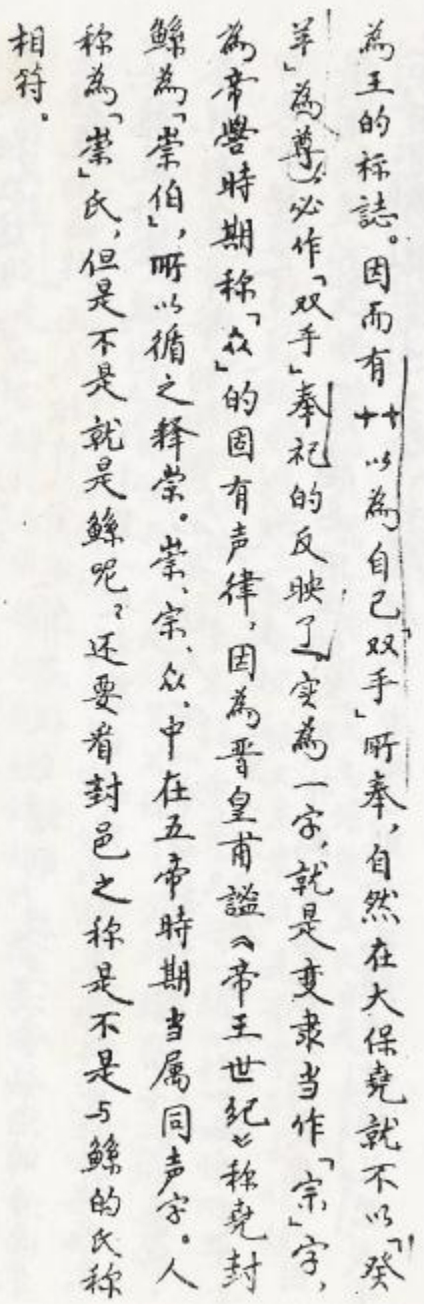 為王的标誌。因而有艹以為自己「双手」所奉，自然在大保堯就不以「癸
羊」為尊，必作「双手」奉祀的反映了。实為一字，就是变隶当作「宗」字，
為帝嚳時期称「众」的固有声律，因為晋皇甫謐《帝王世纪》称堯封
鯀為「崇伯」，所以循之释崇。崇、宗、众、中在五帝時期当属同声字。人
称為「崇」氏，但是不是就是鯀呢？还要看封邑之称是不是与鯀的氏称
相符。